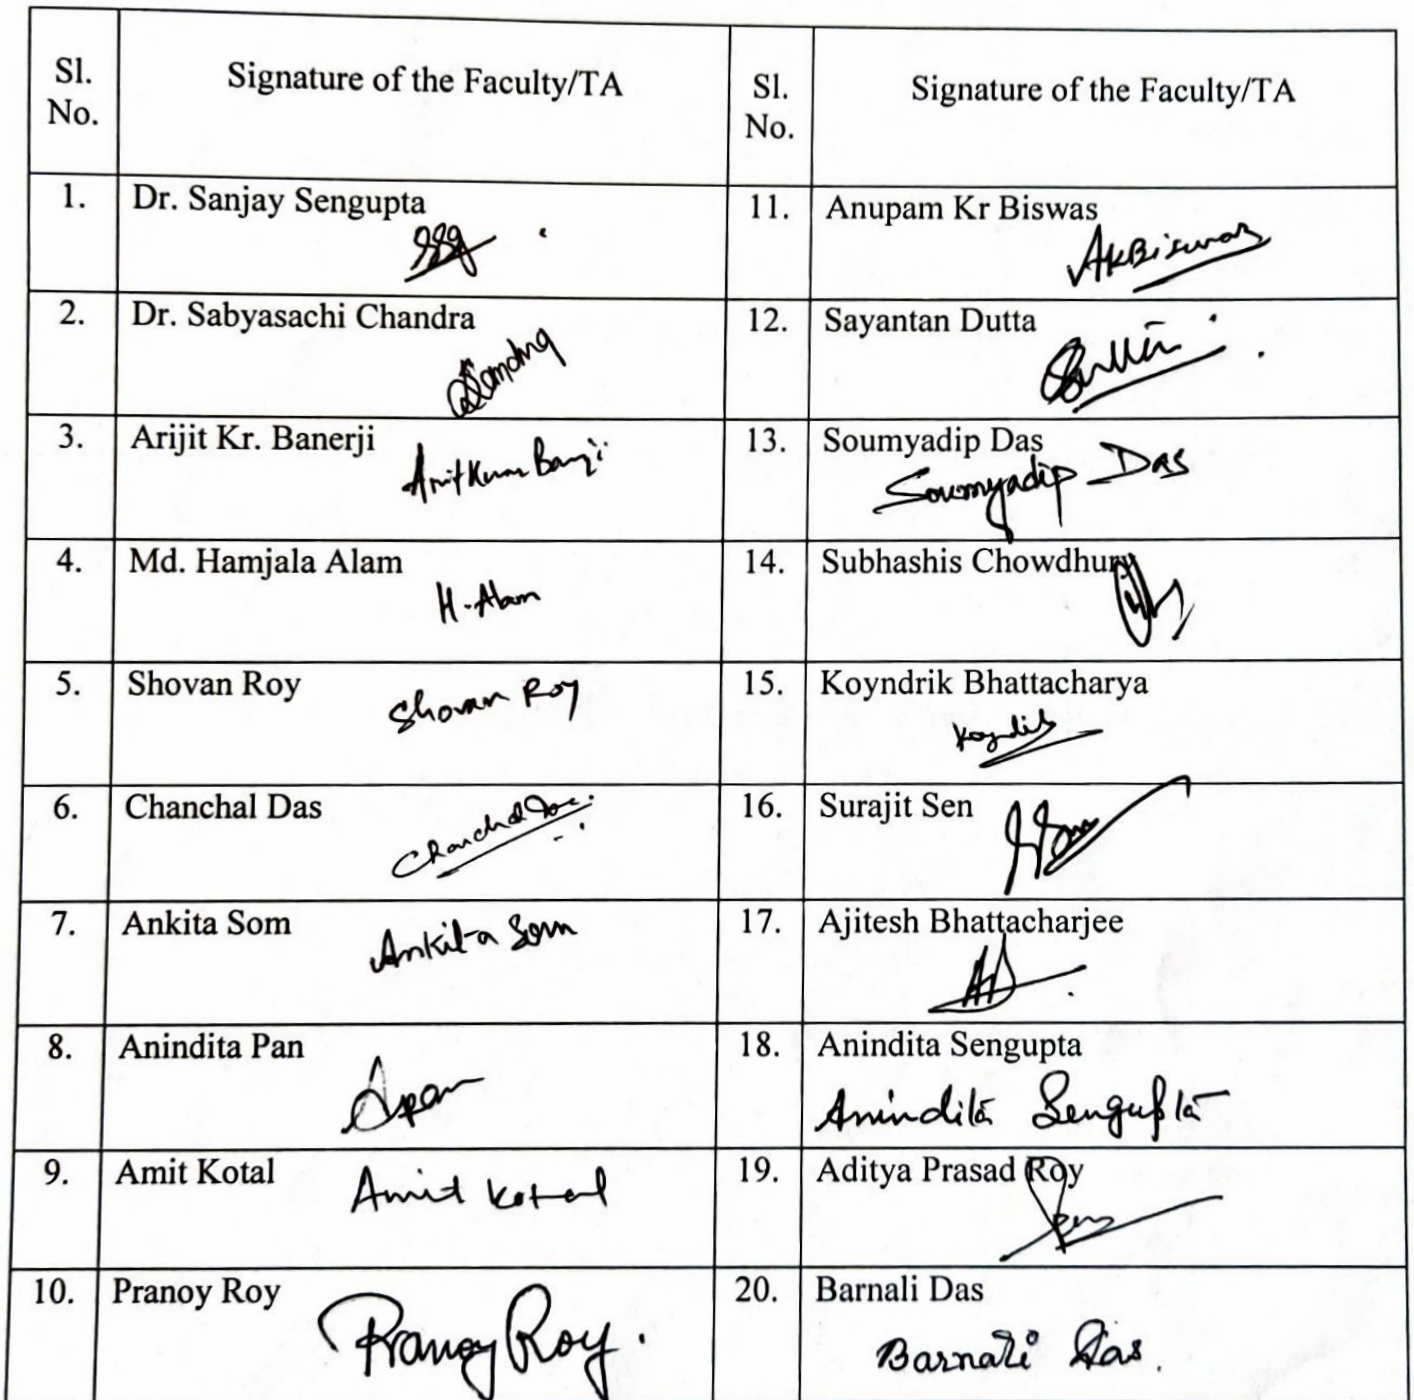 Sl. No.
Signature of the Faculty/TA
Sl. No.
Signature of the Faculty/TA
1. Dr. Sanjay Sengupta
11. Anupam Kr Biswas
AKBiswas
2. Dr. Sabyasachi Chandra
12. Sayantan Dutta
3. Arijit Kr. Banerji
13. Soumyadip Das
Soumyadip Das
4. Md. Hamjala Alam
H. Alam
14. Subhashis Chowdhury
5. Shovan Roy
Shovan Roy
15. Koyndrik Bhattacharya
6. Chanchal Das
Chanchal Das
16. Surajit Sen
7. Ankita Som
Ankita Som
17. Ajitesh Bhattacharjee
8. Anindita Pan
Apan
18. Anindita Sengupta
Anindita Sengupta
9. Amit Kotal
Amit Kotal
19. Aditya Prasad Roy
10. Pranoy Roy
Pranoy Roy.
20. Barnali Das
Barnali Das.